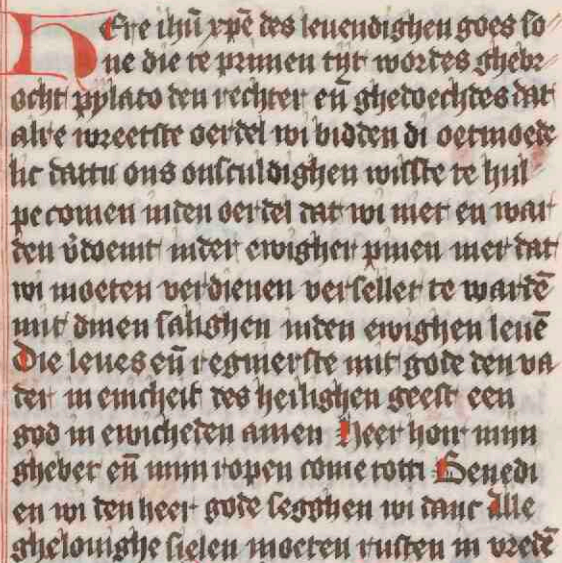 HEre ihū xp̄e des leuendighen goes so
ne die te primen tijt wordes ghebr
ocht pylato den rechter eñ ghedoechdes dat
alre wreetste oerdel wi bidden di oetmoede
lic dattu ons onsculdighen wilste te hul
pe comen inden oerdel dat wi niet en war
den v̄doemt inder ewigher pinen mer dat
wi moeten verdienen versellet te wardē
mit dinen salighen inden ewighen leuē
Die leues eñ regnierste mit gode den va
der in eincheit des heilighen geest een
god in ewicheden amen Heer hoir mijn
ghebet eñ mijn ropen come totti Benedi
en wi den heer gode segghen wi danc Alle
ghelouighe sielen moeten rusten in vredē